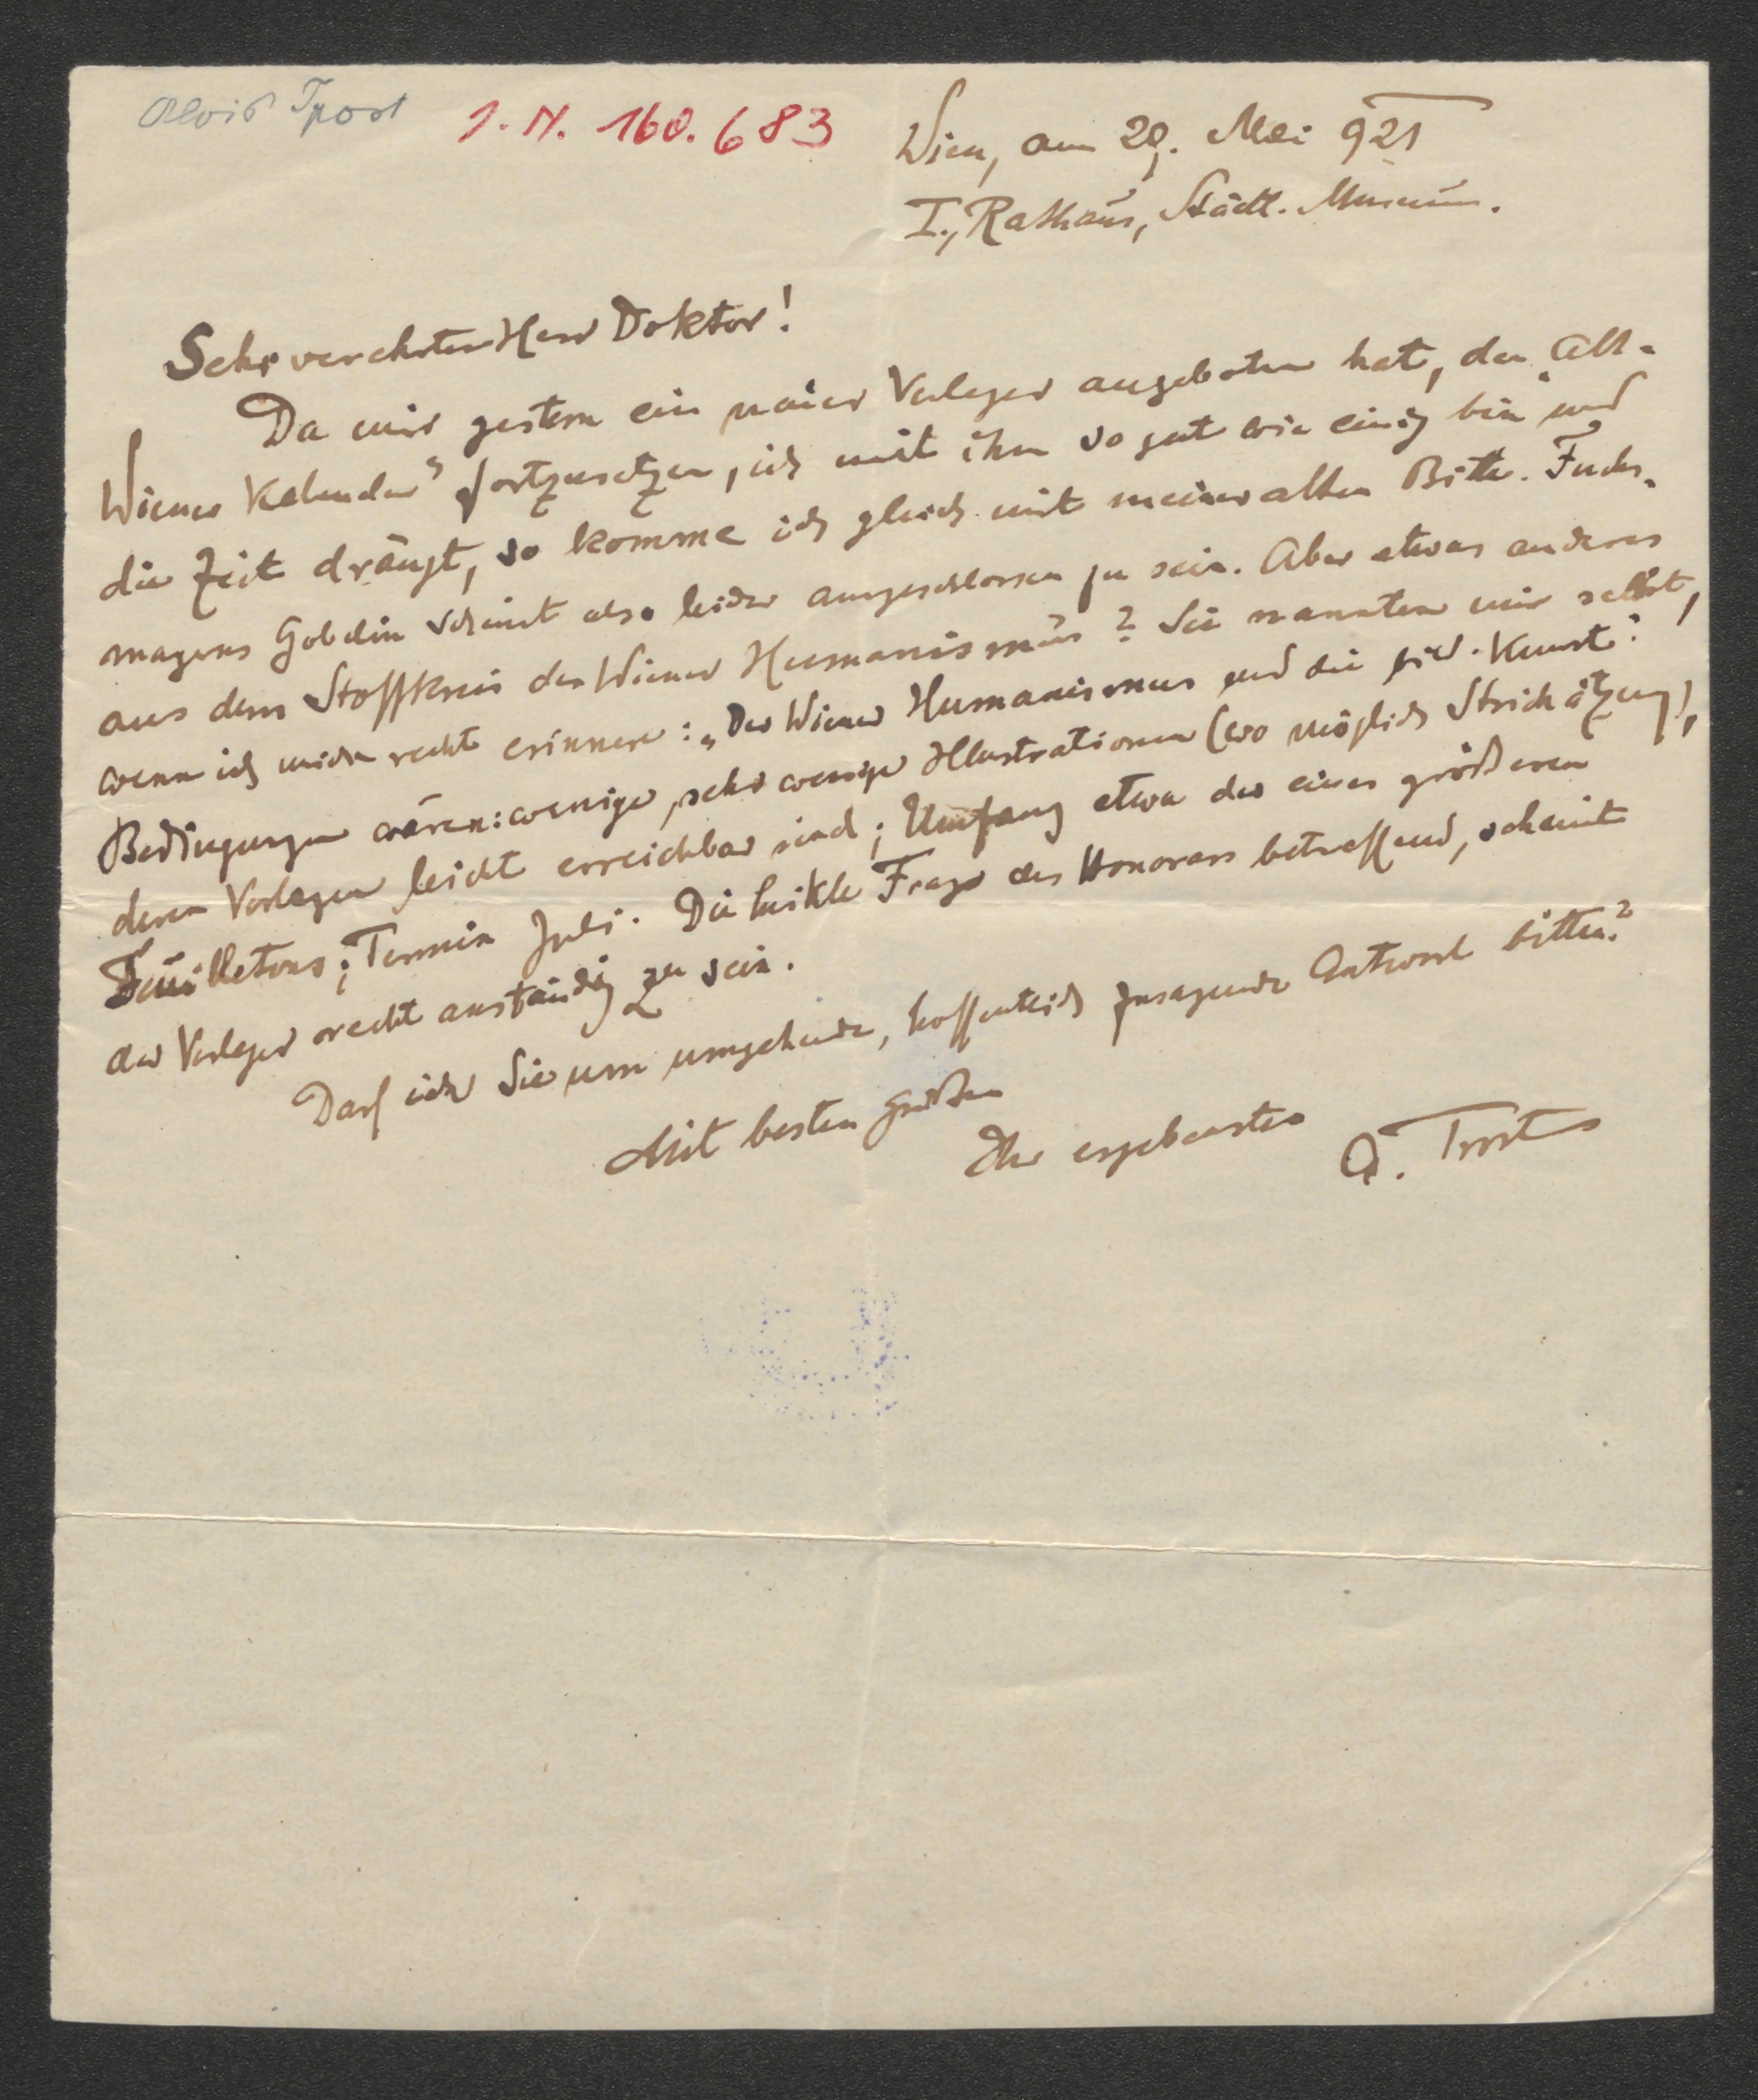 Alois Trost
I. N. 160.683
Wien, am 29. Mai 921
I., Rathaus, Städt. Museum.
Sehr verehrter Herr Doktor!
Da mir gestern ein neuer Verleger angeboten hat, den „Alt-
Wiener Kalender“ fortzusetzen, ich mit ihm so gut wie einig bin und
die Zeit drängt, so komme ich gleich mit meiner alten Bitte. Fuchs-
magens Gobelin scheint also leider ausgeschlossen zu sein. Aber etwas anderes
aus dem Stoffkreis des Wiener Humanismus? Sie nannten mir selbst,
wenn ich mich recht erinnere: „Der Wiener Humanismus und die bild. Kunst“.
Bedingungen wären: wenige, sehr wenige Illustrationen (wo möglich Strichätzung),
deren Vorlagen leicht erreichbar sind; Umfang etwa der eines größeren
Feuilletons; Termin Juli. Die heikle Frage des Honorars betreffend, scheint
der Verleger recht anständig zu sein.
Darf ich Sie um umgehende, hoffentlich zusagende Antwort bitten?
Mit besten Grüßen
Ihr ergebenster
A. Trost